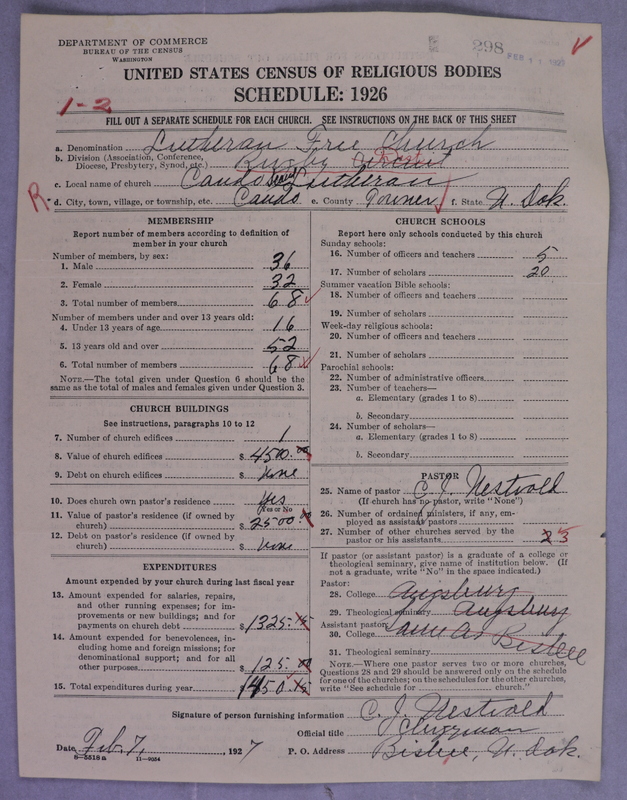 DEPARTMENT OF COMMERCE
BUREAU OF THE CENSUS
WASHINGTON
298
FEB 11
UNITED STATES CENSUS OF RELIGIOUS BODIES
SCHEDULE: 1926
1-2
FILL OUT A SEPARATE SCHEDULE FOR EACH CHURCH. SEE INSTRUCTIONS ON THE BACK OF THIS SHEET
a. Denomination Lutheran Free Church
b. Division (Association, Conference, Diocese, Presbytery, Synod, etc.) Rugby Circuit
c. Local name of church Cando Lutheran
R d. City, town, village, or township, etc. Cando e. County Towner f. State N. Dak.
MEMBERSHIP
Report number of members according to definition of member in your church
Number of members, by sex:
1. Male 36
2. Female 32
3. Total number of members 68
Number of members under and over 13 years old:
4. Under 13 years of age 16
5. 13 years old and over 52
6. Total number of members 68
NOTE.—The total given under Question 6 should be the same as the total of males and females given under Question 3.
CHURCH BUILDINGS
See instructions, paragraphs 10 to 12
7. Number of church edifices 1
8. Value of church edifices $ 4500.00
9. Debt on church edifices $ None
10. Does church own pastor's residence Yes
(Yes or No)
11. Value of pastor's residence (if owned by church) $ 2500.00
12. Debt on pastor's residence (if owned by church) $ None
EXPENDITURES
Amount expended by your church during last fiscal year
13. Amount expended for salaries, repairs, and other running expenses; for improvements or new buildings; and for payments on church debt $ 1325.15
14. Amount expended for benevolences, including home and foreign missions; for denominational support; and for all other purposes $ 125.00
15. Total expenditures during year $ 1450.15
CHURCH SCHOOLS
Report here only schools conducted by this church
Sunday schools:
16. Number of officers and teachers 5
17. Number of scholars 20
Summer vacation Bible schools:
18. Number of officers and teachers
19. Number of scholars
Week-day religious schools:
20. Number of officers and teachers
21. Number of scholars
Parochial schools:
22. Number of administrative officers
23. Number of teachers—
a. Elementary (grades 1 to 8)
b. Secondary
24. Number of scholars—
a. Elementary (grades 1 to 8)
b. Secondary
PASTOR
25. Name of pastor C. J. Nestvold
(If church has no pastor, write "None")
26. Number of ordained ministers, if any, employed as assistant pastors
27. Number of other churches served by the pastor or his assistants 2 3
If pastor (or assistant pastor) is a graduate of a college or theological seminary, give name of institution below. (If not a graduate, write "No" in the space indicated.)
Pastor:
28. College Augsburg
29. Theological seminary Augsburg
Assistant pastor:
30. College Same As Bisbee
31. Theological seminary
NOTE.—Where one pastor serves two or more churches, Questions 28 and 29 should be answered only on the schedule for one of the churches; on the schedules for the other churches, write "See schedule for church."
Signature of person furnishing information C. J. Nestvold
Official title Clergyman
Date Feb. 7, 1927 P. O. Address Bisbee, N. Dak.
8-5518a 11-9054